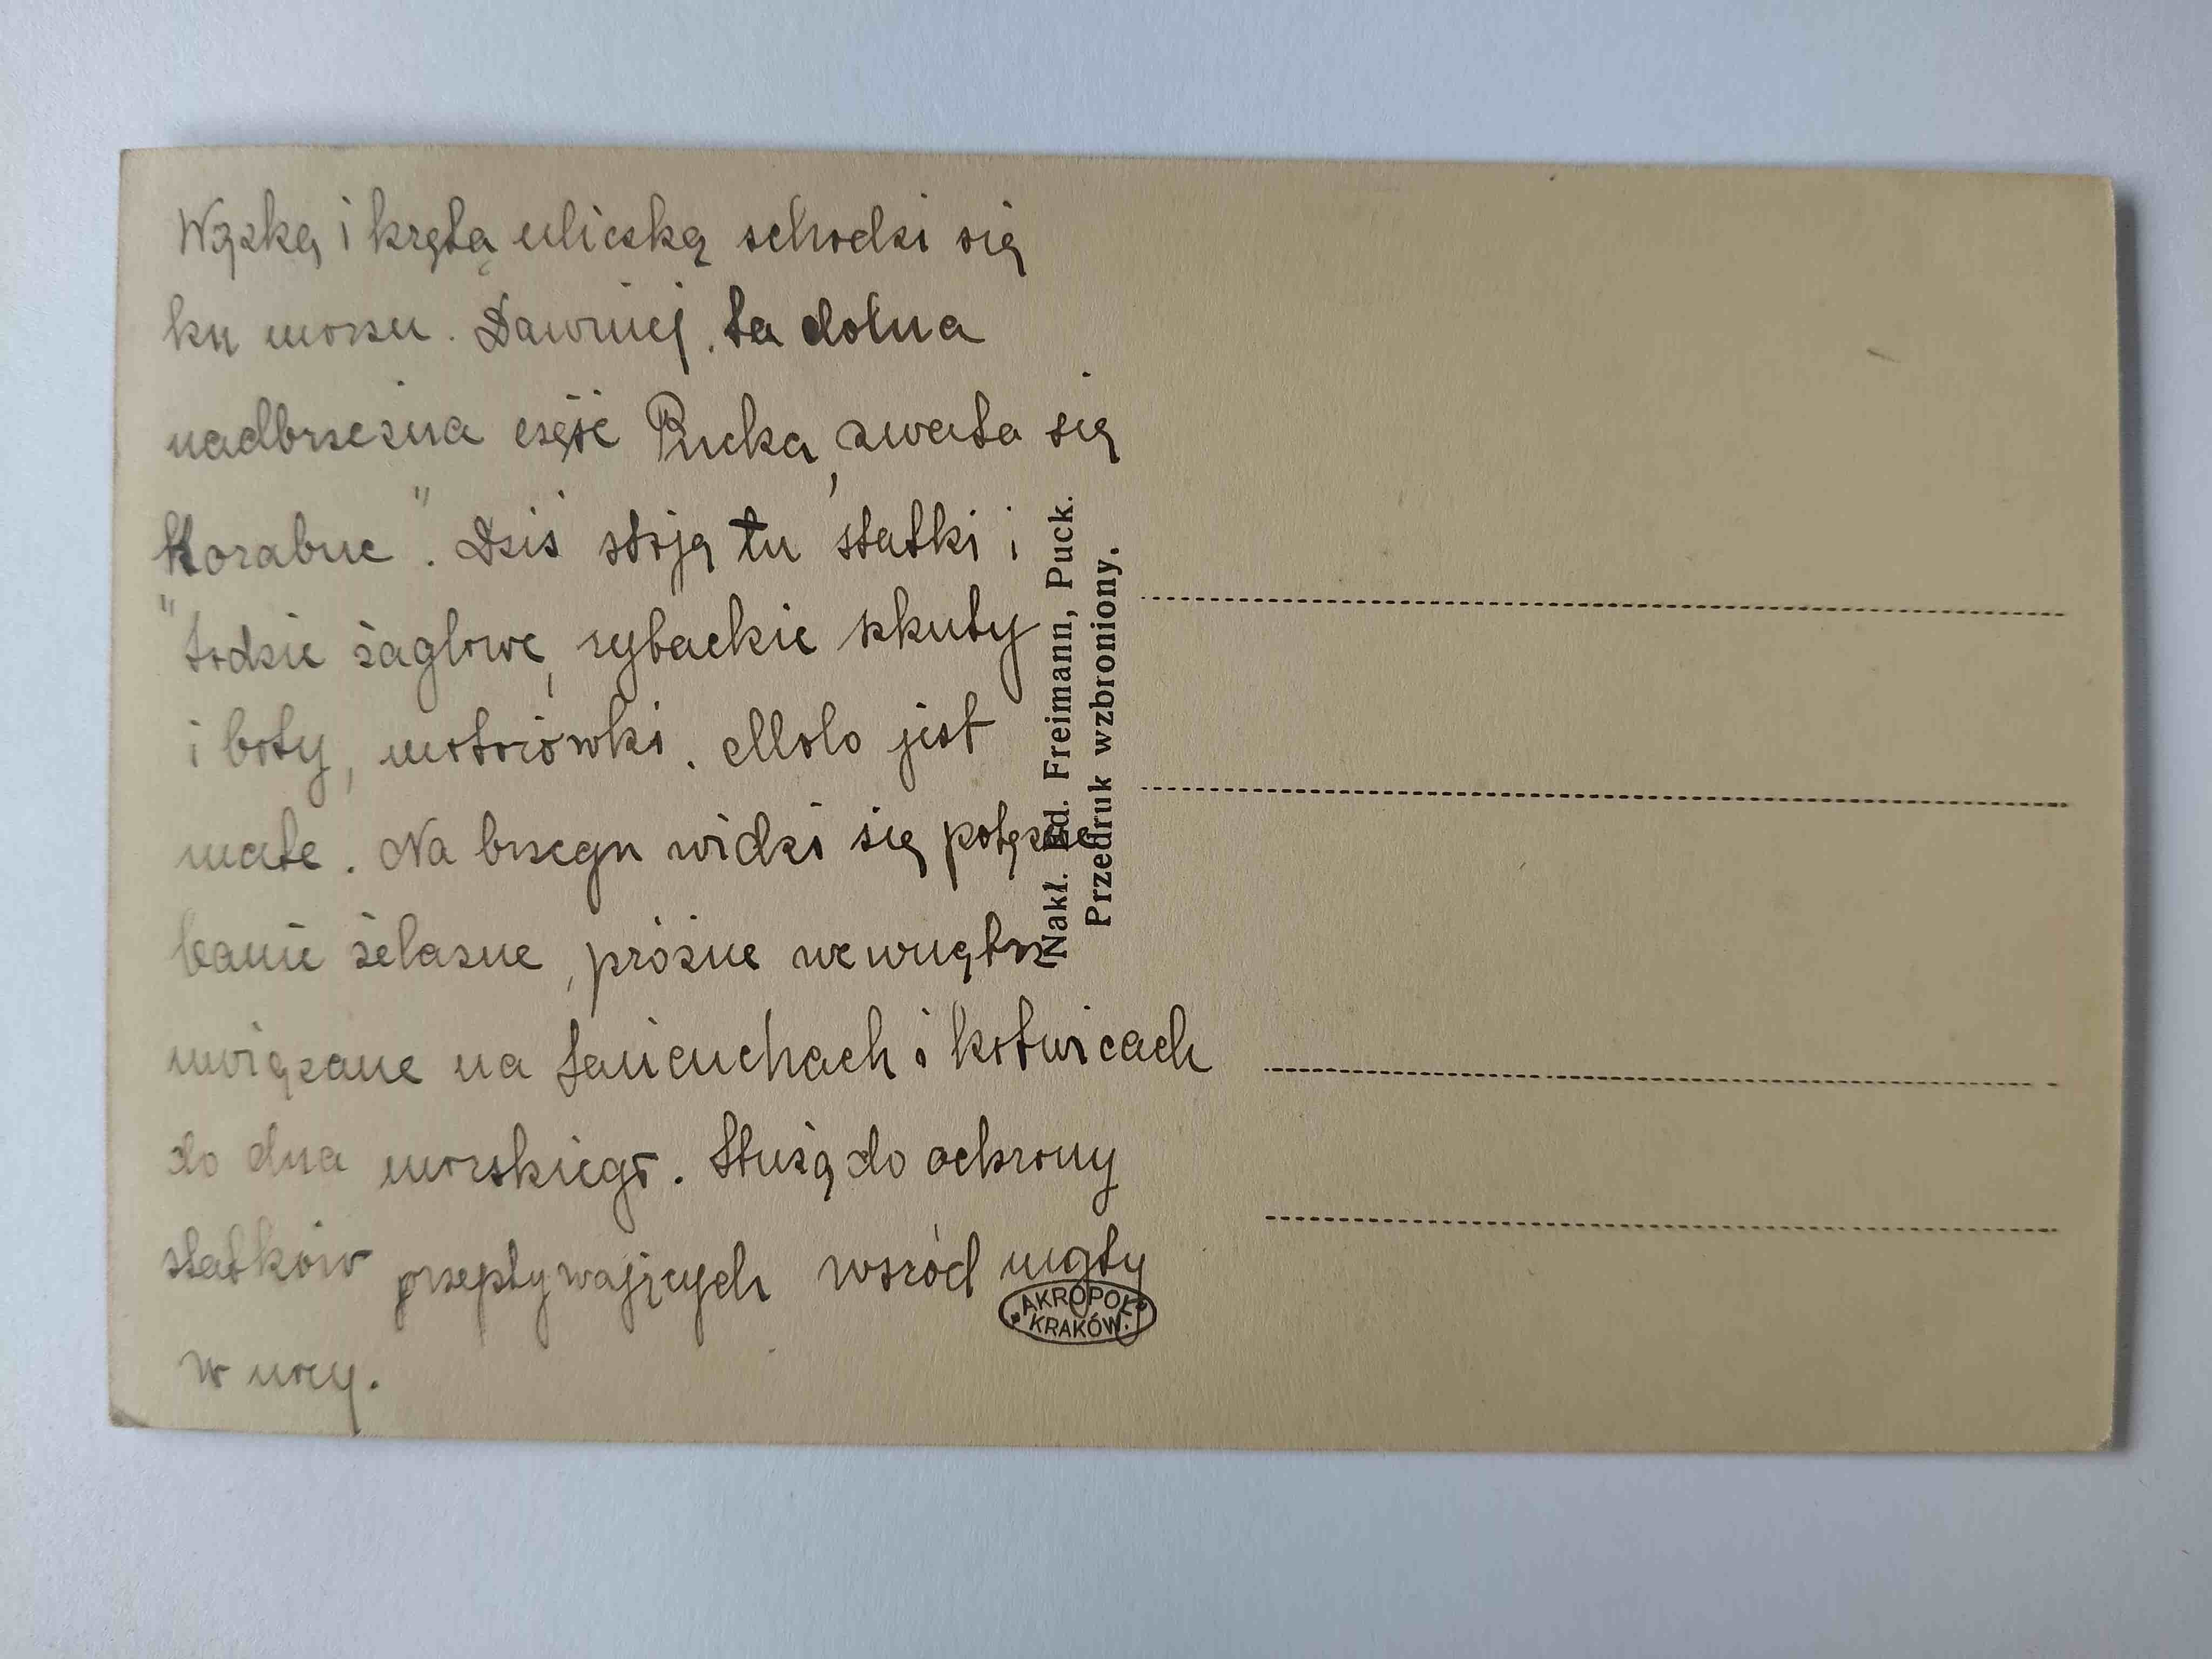 Wązką i krętą uliczką schodzi się
ku morzu. Dawniej, ta dolna
nadbrzeżna część Pucka, zwała się
"Korabne". Dziś stoją tu statki i
łodzie żaglowe, rybackie szkuty
i boty, motorówki. Molo jest
małe. Na brzegu widzi się potężne
banie żelazne, próżne wewnątrz
uwiązane na łańcuchach i kotwicach
do dna morskiego. Służą do ochrony
statków przepływających wśród mgły
w nocy.
Nakł. Ed. Freimann, Puck.
Przedruk wzbroniony.
„AKROPOL”
KRAKÓW.